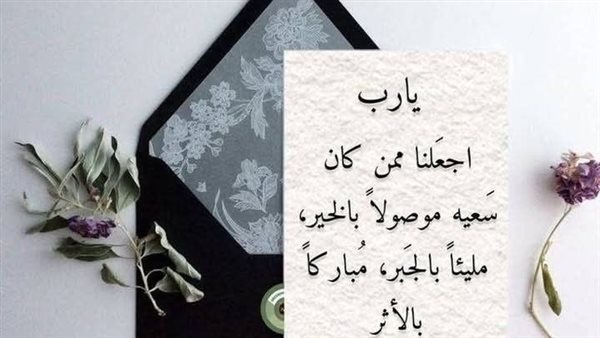 يارب
اجعَلنا ممن كان
سَعيه موصولاً بالخير،
مليئاً بالجَبر، مُباركاً
بالأثر